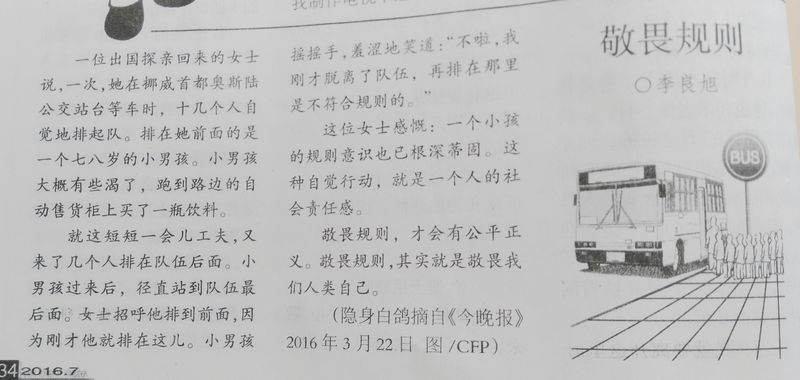 敬畏规则
○李良旭
一位出国探亲回来的女士
说,一次,她在挪威首都奥斯陆
公交站台等车时,十几个人自
觉地排起队。排在她前面的是
一个七八岁的小男孩。小男孩
大概有些渴了,跑到路边的自
动售货柜上买了一瓶饮料。
就这短短一会儿工夫,又
来了几个人排在队伍后面。小
男孩过来后,径直站到队伍最
后面。女士招呼他排到前面,因
为刚才他就排在这儿。小男孩
摇摇手,羞涩地笑道:“不啦,我
刚才脱离了队伍,再排在那里
是不符合规则的。”
这位女士感慨:一个小孩
的规则意识也已根深蒂固。这
种自觉行动,就是一个人的社
会责任感。
敬畏规则,才会有公平正
义。敬畏规则,其实就是敬畏我
们人类自己。
(隐身白鸽摘自《今晚报》
2016年3月22日 图/CFP)
BUS
34 2016.7